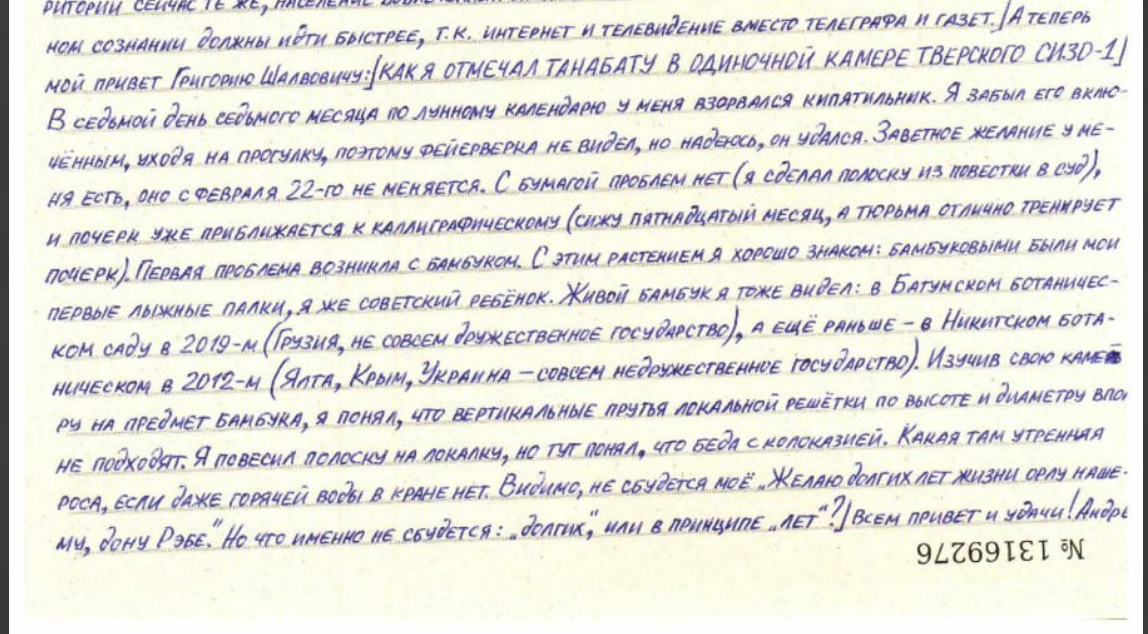 РИТОРИИ СЕЙЧАС ТЕ ЖЕ, НАСЕЛЕНИЕ
НОМ СОЗНАНИИ ДОЛЖНЫ ИДТИ БЫСТРЕЕ, Т.К. ИНТЕРНЕТ И ТЕЛЕВИДЕНИЕ ВМЕСТО ТЕЛЕГРАФА И ГАЗЕТ.] А ТЕПЕРЬ
МОЙ ПРИВЕТ ГРИГОРИЮ ШАЛВОВИЧУ:[КАК Я ОТМЕЧАЛ ТАНАБАТУ В ОДИНОЧНОЙ КАМЕРЕ ТВЕРСКОГО СИЗО-1]
В СЕДЬМОЙ ДЕНЬ СЕДЬМОГО МЕСЯЦА ПО ЛУННОМУ КАЛЕНДАРЮ У МЕНЯ ВЗОРВАЛСЯ КИПЯТИЛЬНИК. Я ЗАБЫЛ ЕГО ВКЛЮ-
ЧЁННЫМ, УХОДЯ НА ПРОГУЛКУ, ПОЭТОМУ ФЕЙЕРВЕРКА НЕ ВИДЕЛ, НО НАДЕЮСЬ, ОН УДАЛСЯ. ЗАВЕТНОЕ ЖЕЛАНИЕ У МЕ-
НЯ ЕСТЬ, ОНО С ФЕВРАЛЯ 22-ГО НЕ МЕНЯЕТСЯ. С БУМАГОЙ ПРОБЛЕМ НЕТ (Я СДЕЛАЛ ПОЛОСКУ ИЗ ПОВЕСТКИ В СУД),
И ПОЧЕРК УЖЕ ПРИБЛИЖАЕТСЯ К КАЛЛИГРАФИЧЕСКОМУ (СИЖУ ПЯТНАДЦАТЫЙ МЕСЯЦ, А ТЮРЬМА ОТЛИЧНО ТРЕНИРУЕТ
ПОЧЕРК). ПЕРВАЯ ПРОБЛЕМА ВОЗНИКЛА С БАМБУКОМ. С ЭТИМ РАСТЕНИЕМ Я ХОРОШО ЗНАКОМ: БАМБУКОВЫМИ БЫЛИ МОИ
ПЕРВЫЕ ЛЫЖНЫЕ ПАЛКИ, Я ЖЕ СОВЕТСКИЙ РЕБЁНОК. ЖИВОЙ БАМБУК Я ТОЖЕ ВИДЕЛ: В БАТУМСКОМ БОТАНИЧЕС-
КОМ САДУ В 2019-М (ГРУЗИЯ, НЕ СОВСЕМ ДРУЖЕСТВЕННОЕ ГОСУДАРСТВО), А ЕЩЁ РАНЬШЕ – В НИКИТСКОМ БОТА-
НИЧЕСКОМ В 2012-М (ЯЛТА, КРЫМ, УКРАИНА – СОВСЕМ НЕДРУЖЕСТВЕННОЕ ГОСУДАРСТВО). ИЗУЧИВ СВОЮ КАМЕ
РУ НА ПРЕДМЕТ БАМБУКА, Я ПОНЯЛ, ЧТО ВЕРТИКАЛЬНЫЕ ПРУТЬЯ ЛОКАЛЬНОЙ РЕШЁТКИ ПО ВЫСОТЕ И ДИАМЕТРУ ВПО
НЕ ПОДХОДЯТ. Я ПОВЕСИЛ ПОЛОСКУ НА ЛОКАЛКУ, НО ТУТ ПОНЯЛ, ЧТО БЕДА С КОЛОКАЗИЕЙ. КАКАЯ ТАМ УТРЕННЯЯ
РОСА, ЕСЛИ ДАЖЕ ГОРЯЧЕЙ ВОДЫ В КРАНЕ НЕТ. ВИДИМО, НЕ СБУДЕТСЯ МОЁ „ЖЕЛАЮ ДОЛГИХ ЛЕТ ЖИЗНИ ОРЛУ НАШЕ-
МУ, ДОНУ РЭБЕ." НО ЧТО ИМЕННО НЕ СБУДЕТСЯ: „ДОЛГИХ", ИЛИ В ПРИНЦИПЕ „ЛЕТ"?] ВСЕМ ПРИВЕТ И УДАЧИ! АНДРЕ
№ 13169276